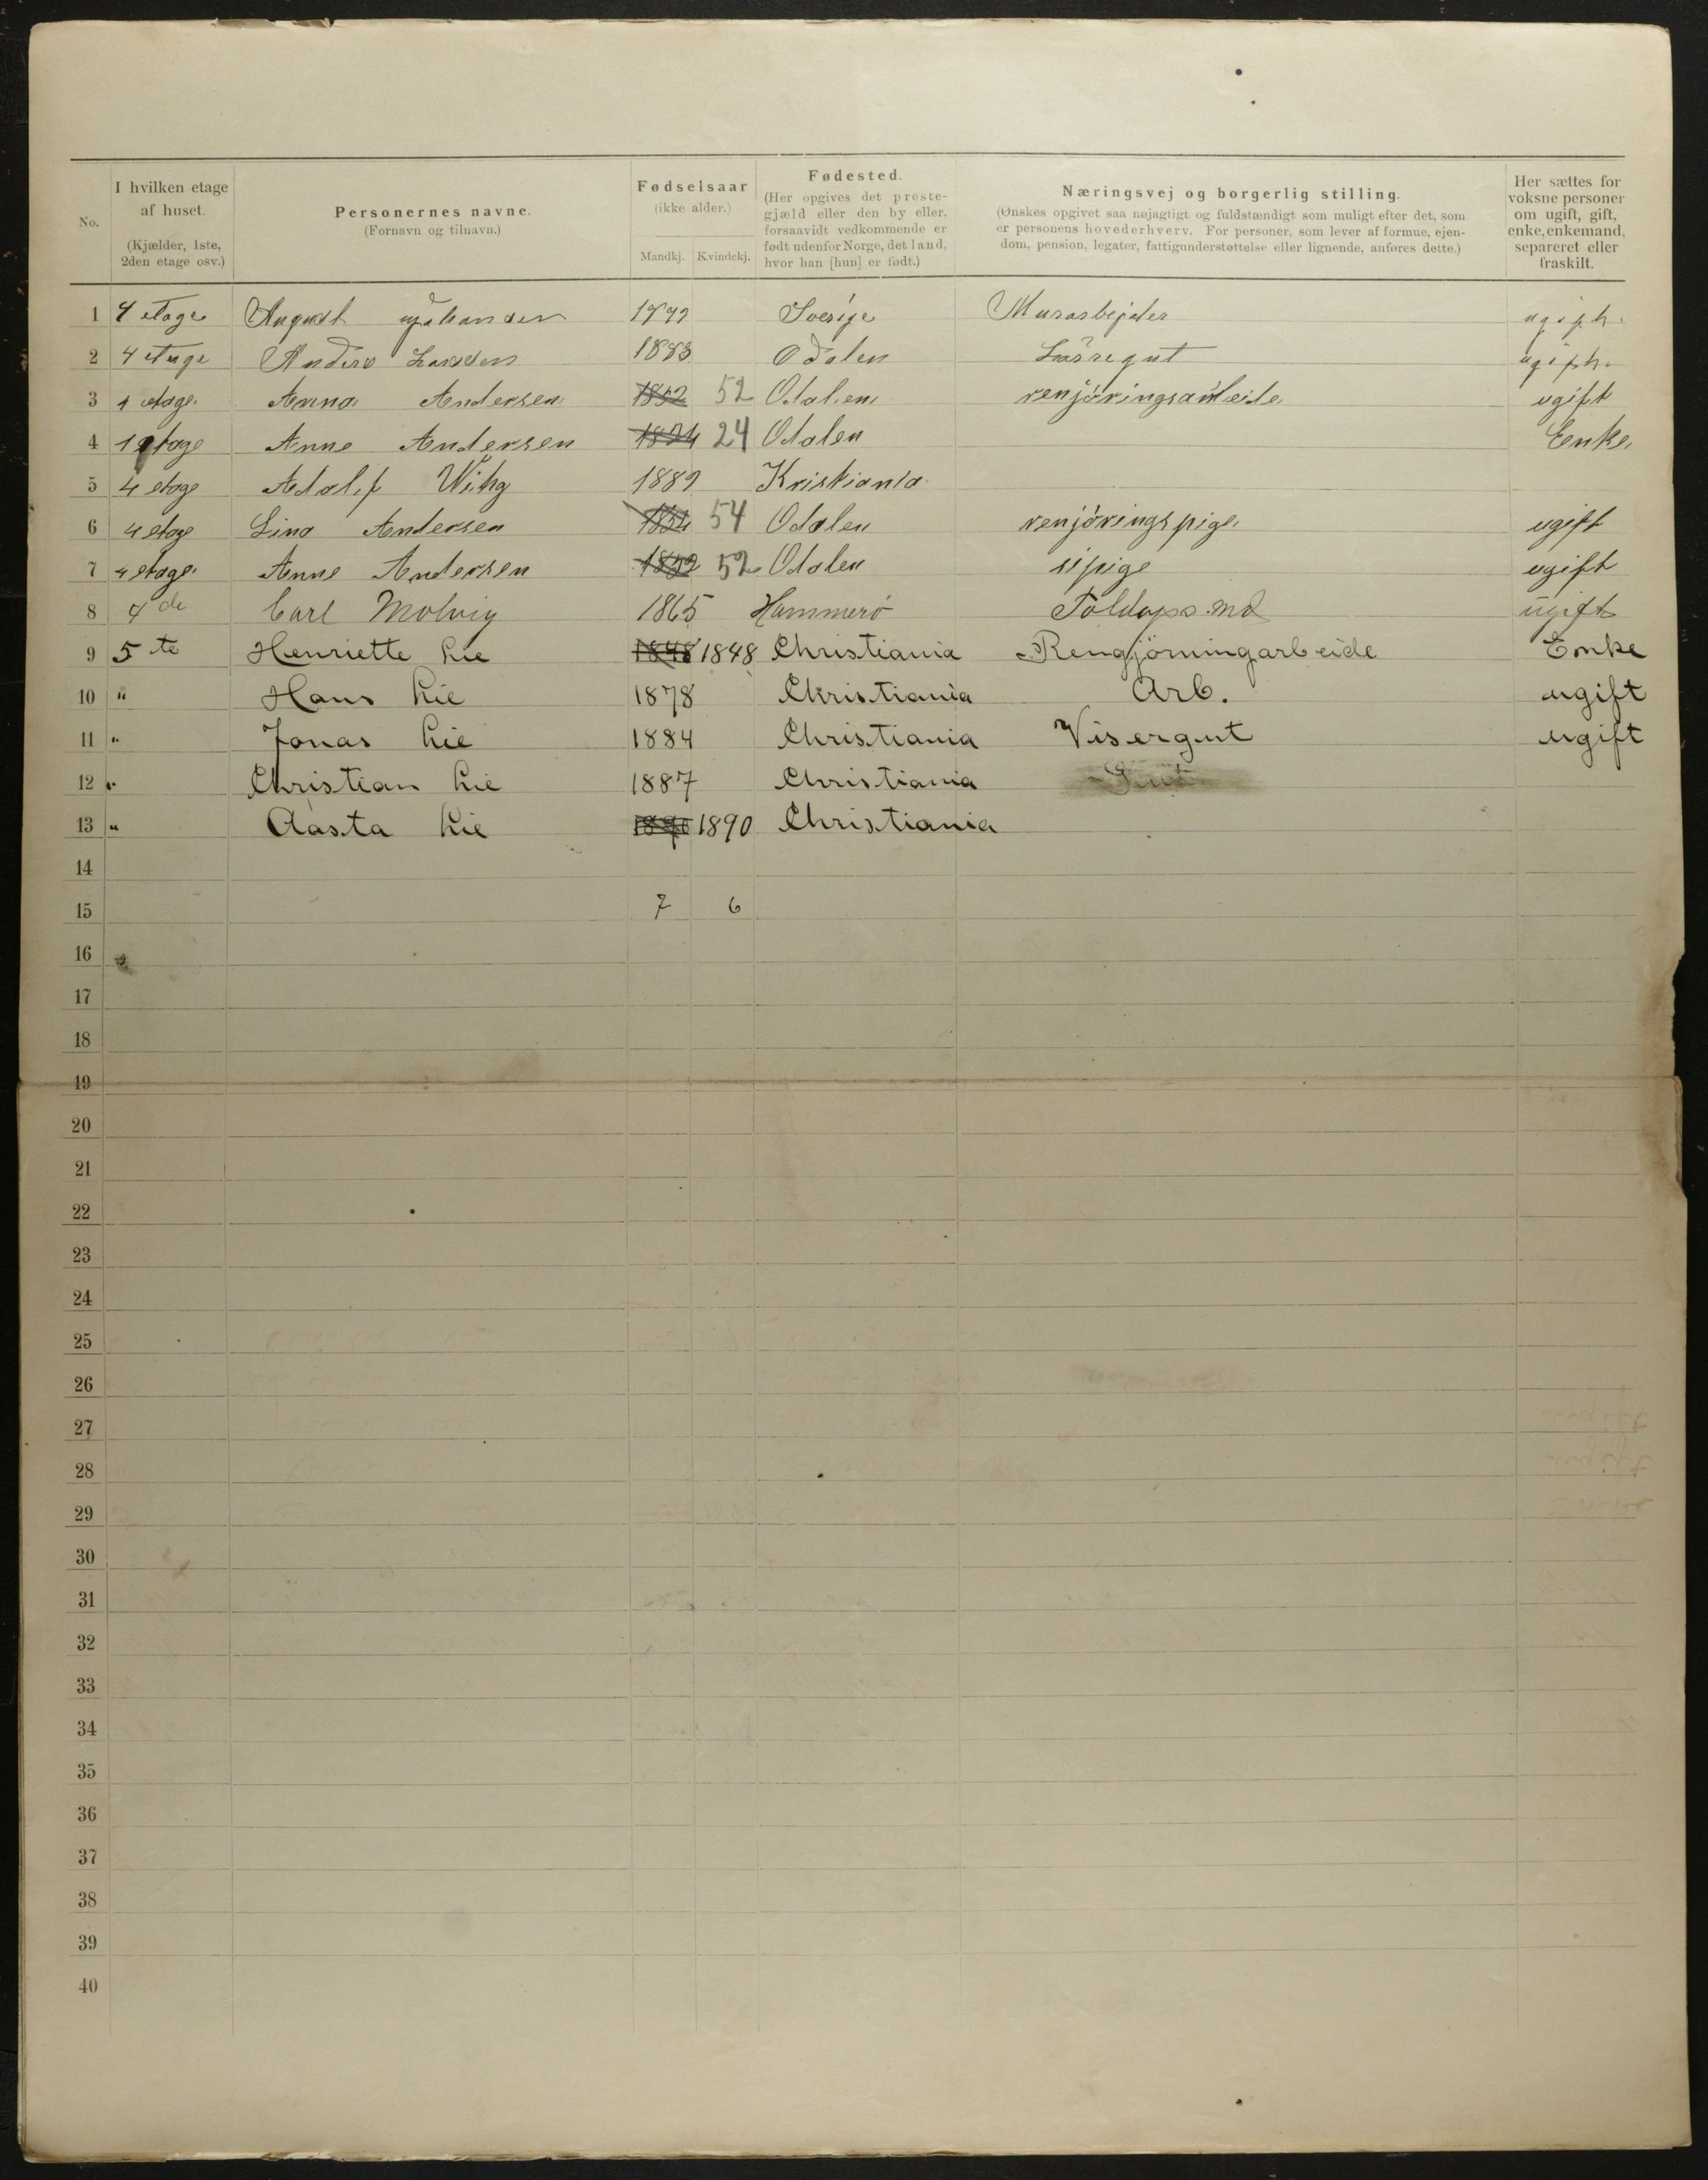 No. | I hvilken etage af huset. (Kjælder, 1ste, 2den etage osv.) | Personernes navne. (Fornavn og tilnavn.) | Fødselsaar (ikke alder.) Mandkj. Kvindekj. | Fødested. (Her opgives det prestegjæld eller den by eller, forsaavidt vedkommende er født udenfor Norge, det land, hvor han [hun] er født.) | Næringsvej og borgerlig stilling. (Ønskes opgivet saa nøjagtigt og fuldstændigt som muligt efter det, som er personens hovederhverv. For personer, som lever af formue, ejendom, pension, legater, fattigunderstøttelse eller lignende, anføres dette.) | Her sættes for voksne personer om ugift, gift, enke, enkemand, separeret eller fraskilt.
1 4 etage August Sverige Murarbejder
2 4 etage Anders Larsen 1883 Odalen
3 4 etage Anna Andersen 1852 52 Odalen ugift
4 1 etage Anne Andersen 1824 24 Odalen Enke
5 4 etage Adolf 1889 Kristiania
6 4 etage Lina Andersen 1854 54 Odalen renjöringspige ugift
7 4 etage Anne Andersen 1852 52 Odalen sipige ugift
8 4 de Carl Molvig 1865 Hammerö ugift
9 5 te Henriette Lie 1848 1848 Christiania Rengjörningarbeide Enke
10 " Hans Lie 1878 Christiania Arb. ugift
11 " Jonas Lie 1884 Christiania Visergut ugift
12 " Christian Lie 1887 Christiania
13 " Aasta Lie 1890 1890 Christiania
14
15 7 6
16
17
18
19
20
21
22
23
24
25
26
27
28
29
30
31
32
33
34
35
36
37
38
39
40